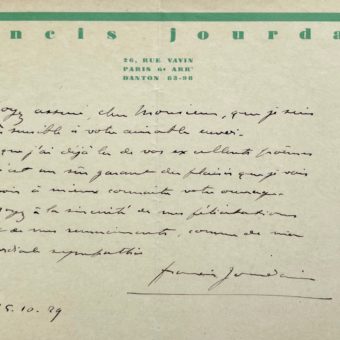 ncis jourda
26, RUE VAVIN
PARIS 6e ARRt
DANTON 63-98
oyez assuré, cher Monsieur, que je suis
sensible à votre aimable envoi.
que j'ai déjà lu de vos excellents poèmes
est un sûr garant des plaisirs que je vais
oir à mieux connaître votre ouvrage.
oyez à la sincérité de mes félicitations
de mes remerciements, comme de ma
rdiale sympathie
Francis Jourdain
5.10.29